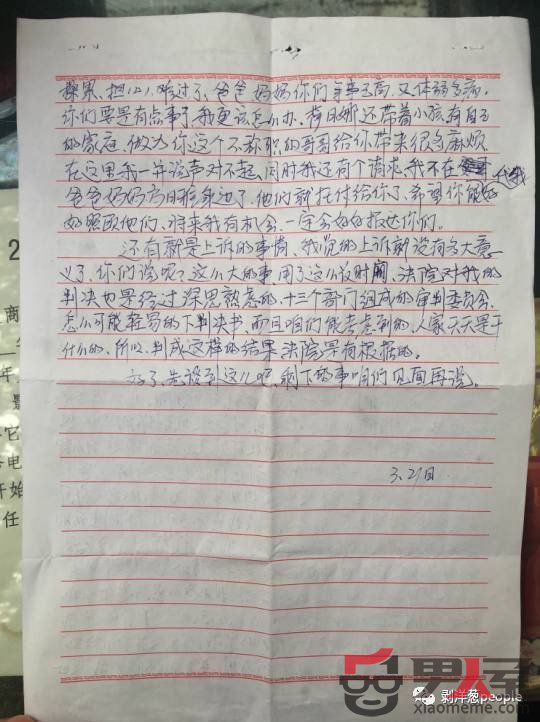 操累、担心、难过了、爸爸妈妈你们年事已高,又体弱多病,
你们要是有点事了,我更该怎么办、荷日娜还带着小孩有自己
的家庭,做达你这个不称职的哥哥给你带来很多麻烦
在这里我一并说声对不起、同时我还有个请求、我不在
爸爸妈妈身边了,他们就托付给你了、希望你能好
好照顾他们、将来我有机会、一定会好好报达你们。
还有就是上诉的事情、我觉的上诉新没有多大意
义了,你们说呢?这么大的事、用了这么长时间、法院对我的
判决也是经过深思熟虑的、十三个部门组成的审判委员会、
怎么可能轻易的下判决书、而且咱们能考虑到的人家天天是干
什么的、所以、判成这样的结果法院是有根据的。
好了、先谈到这儿吧、剩下的事咱们见面再说。
3、21日
商
年
它
电
开始
任
剥洋葱people
xiaomeme.com